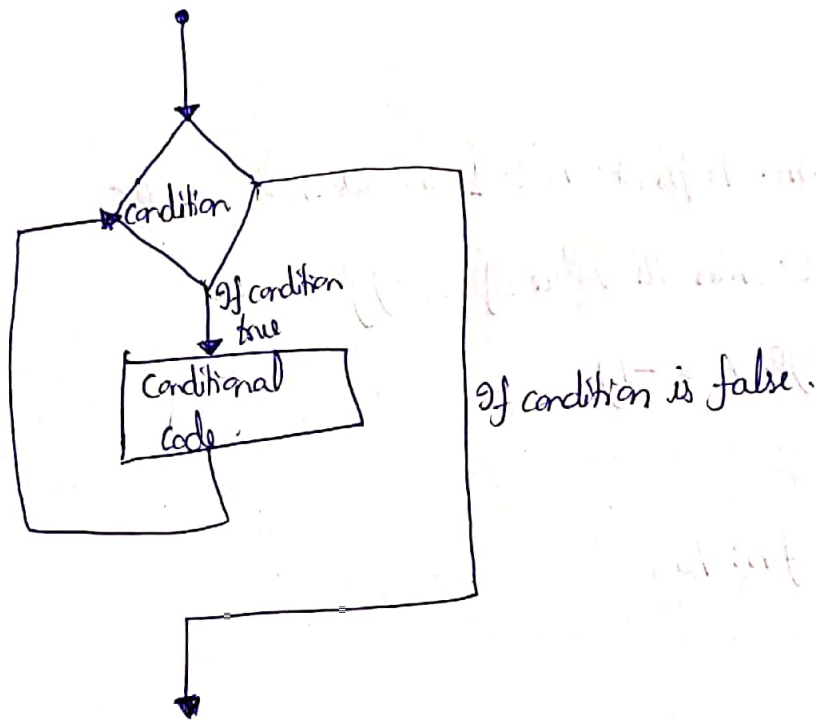 condition
If condition
true
Conditional
Code.
If condition is false.